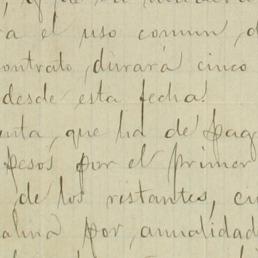 el uso comun, d
ontrato, durará cinco
desde esta fecha!
enta, que ha de pag
pesos por el primer
de los restantes, cu
por, anualidad